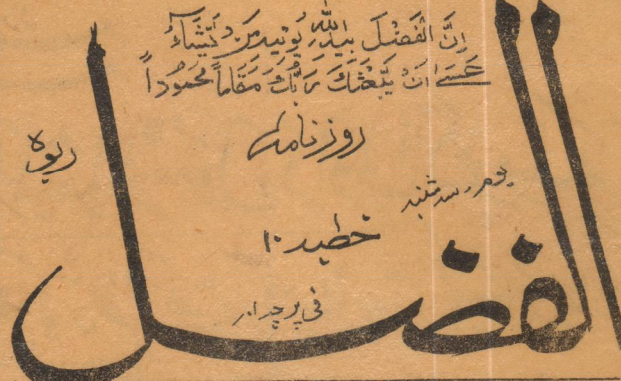 اِنَّ الْفَضْلَ بِيَدِ اللّٰهِ يُؤْتِيْهِ مَنْ يَّشَآءُ
عَسٰۤی اَنْ يَّبْعَثَكَ رَبُّكَ مَقَامًا مَّحْمُوْدًا
روزنامہ
ربوہ
یوم سہ شنبہ
فی پرچہ
الفضل